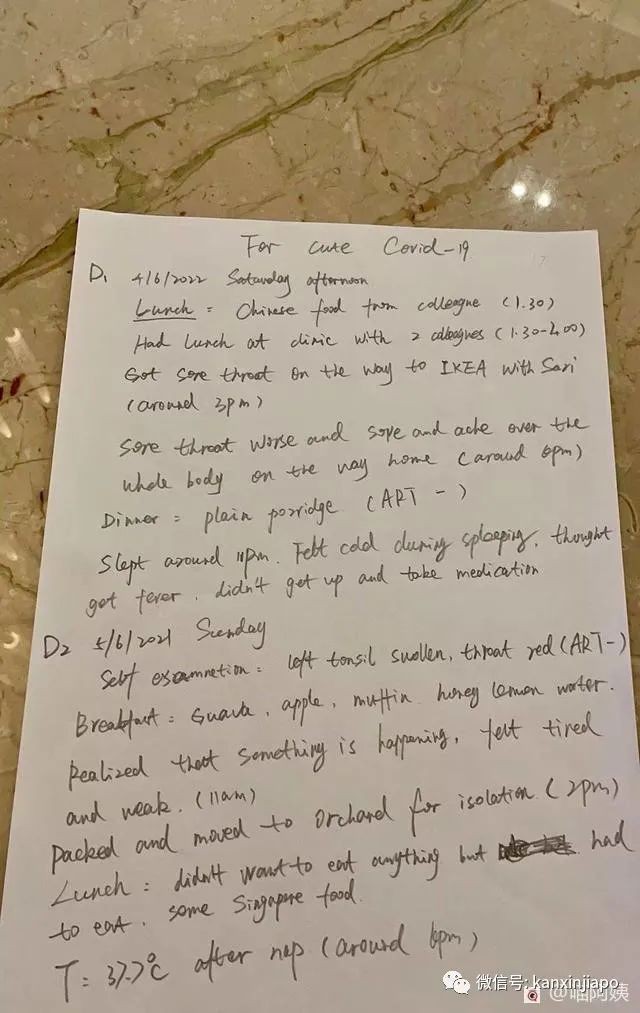 For cute Covid-19
D1 4/6/2022 Saturday afternoon
Lunch = Chinese food from colleague (1.30)
Had lunch at clinic with 2 colleagues (1.30-2.00)
Got sore throat on the way to IKEA with Sari
(around 3pm)
Sore throat worse and sore and ache over the
whole body on the way home (around 6pm)
Dinner = plain porridge (ART -)
Slept around 11pm. Felt cold during spleeping, thought
got fever, didn't get up and take medication
D2 5/6/2021 Sunday
Self examnetion = left tonsil swollen, throat red (ART-)
Breakfast = Guava, apple, muffin. honey lemon water.
Realized that something is happening, felt tired
and weak. (11am)
Packed and moved to orchard for isolation. (2pm)
Lunch = didn't want to eat anything but had
to eat. some Singapore food.
T= 37.7°C after nap (around 6pm)
微信号: kanxinjiapo
@喵阿姨